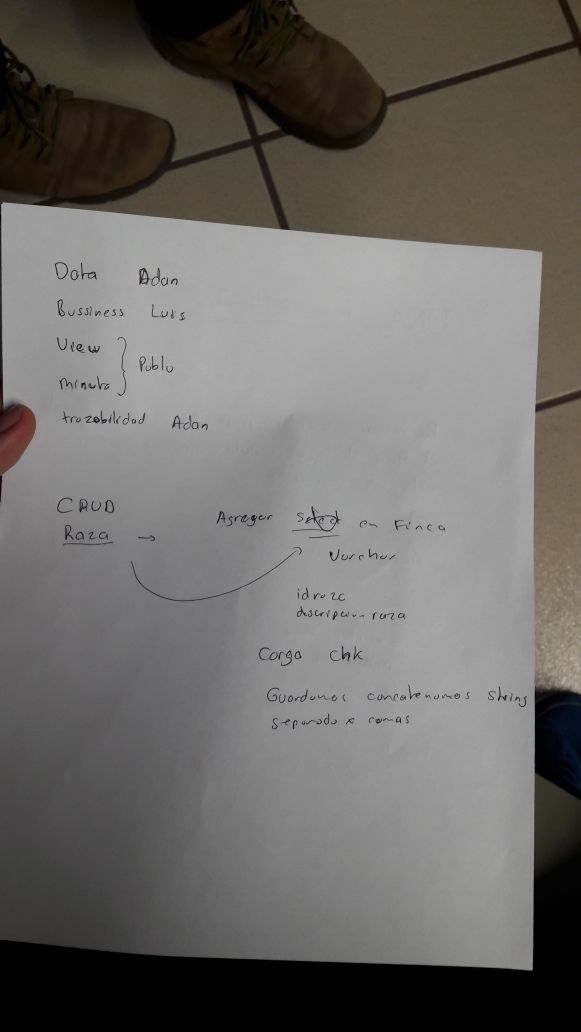 Data Adan
Bussiness Luis
View
minuta } Pablo
trazabilidad Adan
CRUD
Raza → Agregar select en Finca
Varchar
idraza
descripcion raza
Carga chk
Guardamos concatenamos string
separado x comas